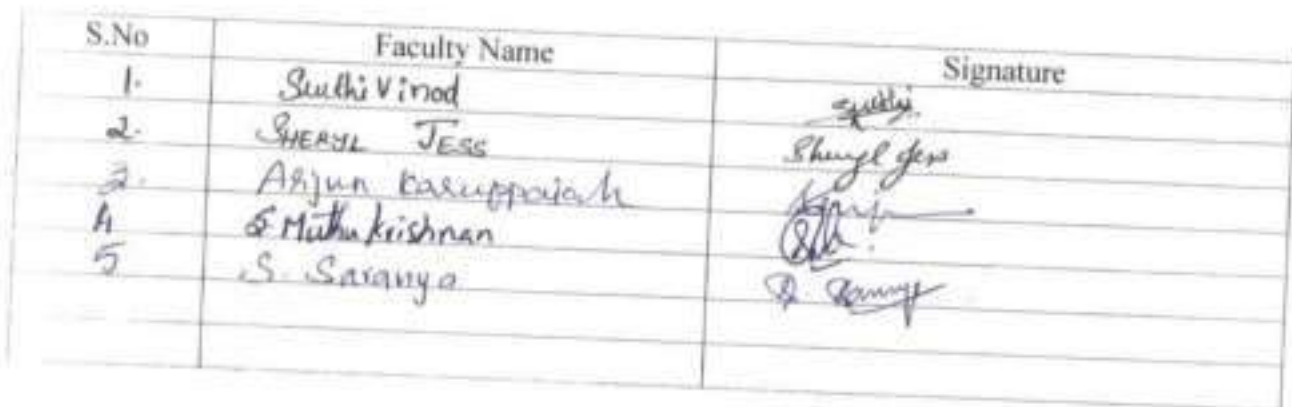 S.No Faculty Name Signature
1. Sruthi Vinod Sruthi
2. SHERYL JESS Sheryl Jess
3. Arjun Karuppaiah
4 S Muthu krishnan
5 S. Saranya